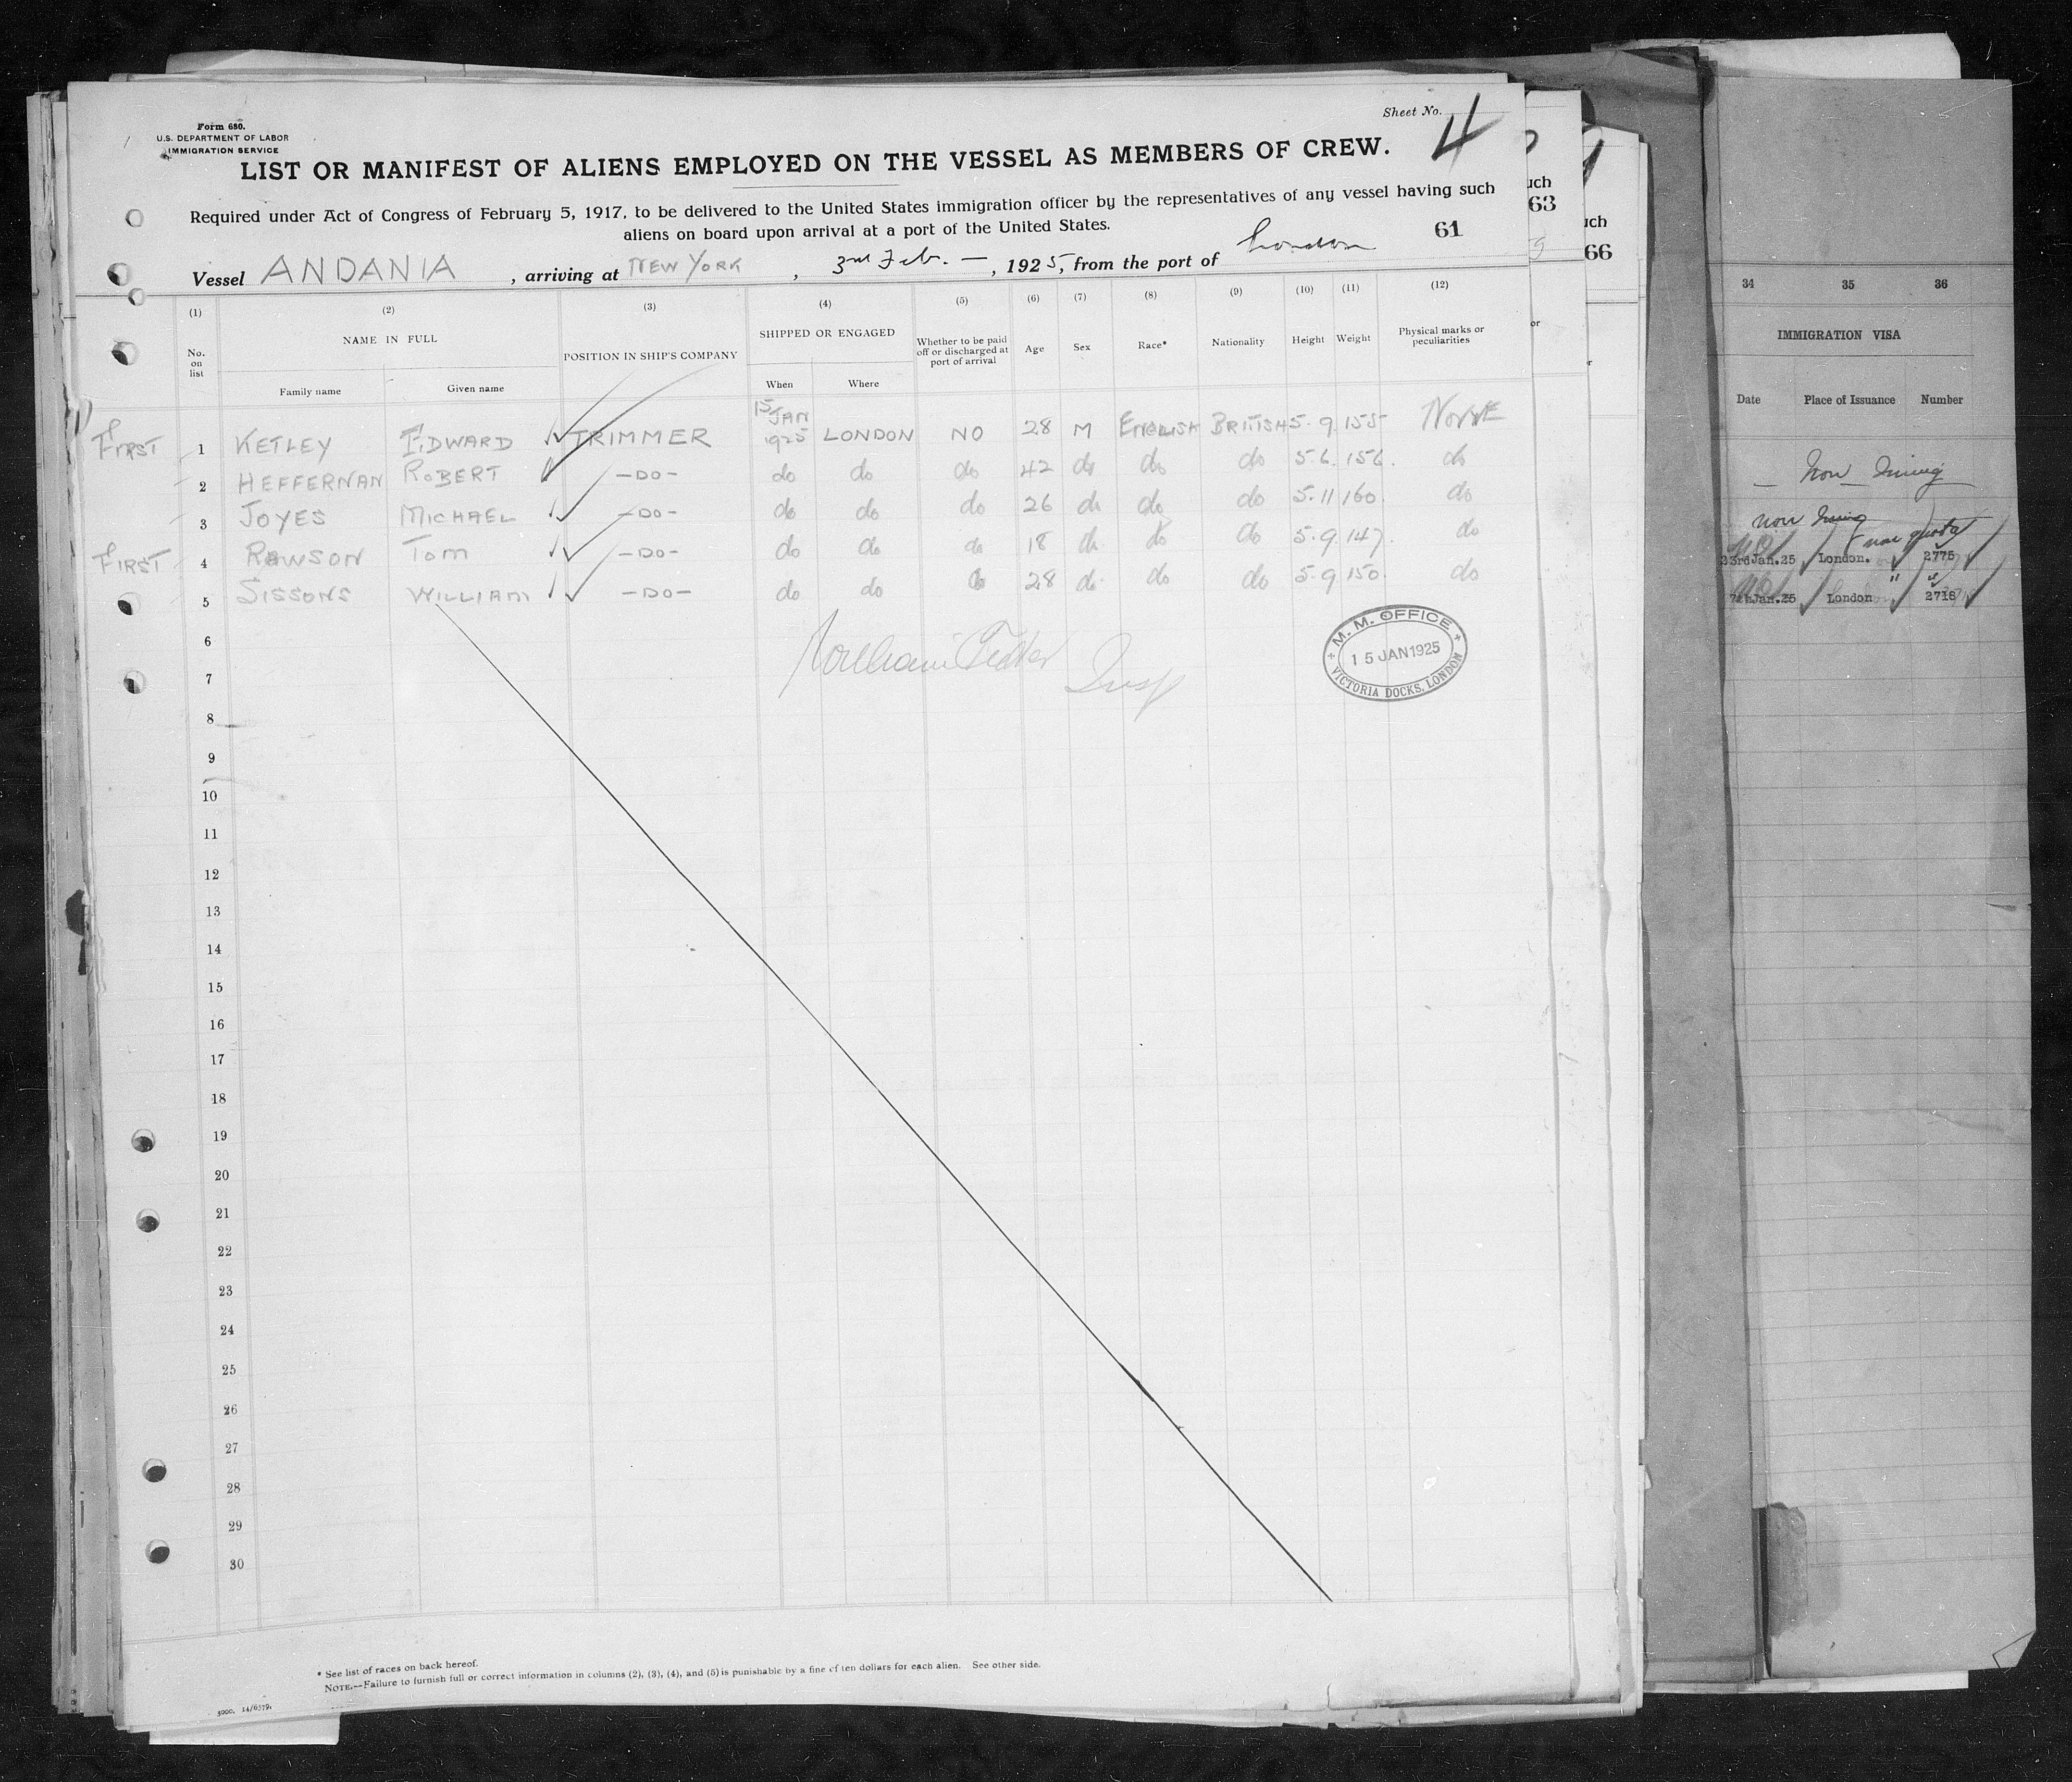 Form 680.
U.S. DEPARTMENT OF LABOR
IMMIGRATION SERVICE
Sheet No. 4
LIST OR MANIFEST OF ALIENS EMPLOYED ON THE VESSEL AS MEMBERS OF CREW.
Required under Act of Congress of February 5, 1917, to be delivered to the United States immigration officer by the representatives of any vessel having such
aliens on board upon arrival at a port of the United States.
61
Vessel ANDANIA, arriving at NEW YORK, 3rd Feb. —, 1925, from the port of London
(1) (2) (3) (4) (5) (6) (7) (8) (9) (10) (11) (12)
No. on list NAME IN FULL POSITION IN SHIP'S COMPANY SHIPPED OR ENGAGED Whether to be paid off or discharged at port of arrival Age Sex Race* Nationality Height Weight Physical marks or peculiarities
Family name Given name When Where
FIRST 1 KETLEY EDWARD TRIMMER 15 JAN 1925 LONDON NO 28 M ENGLISH BRITISH 5.9 155 NONE
2 HEFFERNAN ROBERT —DO— do do do 42 do do do 5.6. 156. do
3 JOYES MICHAEL —DO— do do do 26 do do do 5.11 160. do
FIRST 4 RAWSON TOM —DO— do do do 18 do do do 5.9. 147. do
5 SISSONS WILLIAM —DO— do do do 28 do do do 5.9 150. do
6
7
8
9
10
11
12
13
14
15
16
17
18
19
20
21
22
23
24
25
26
27
28
29
30
M. M. OFFICE
15 JAN 1925
VICTORIA DOCKS, LONDON
* See list of races on back hereof.
NOTE.—Failure to furnish full or correct information in columns (2), (3), (4), and (5) is punishable by a fine of ten dollars for each alien. See other side.
3000. 14/6579.
uch
63
uch
66
or
34 35 36
IMMIGRATION VISA
Date Place of Issuance Number
non quota
23rd Jan.25 London. 2775
Jan.25 London 2718